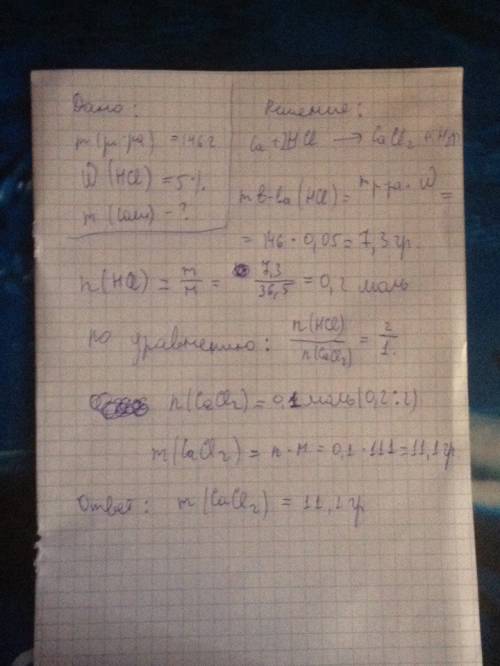 Дано:
m(р-ра) = 146 г
W (HCl) = 5%
m (соли) - ?
Решение:
Ca + 2HCl → CaCl₂ + H₂
m в-ва (HCl) = m р-ра · W =
= 146 · 0,05 = 7,3 гр.
n(HCl) = m/M = 7,3/36,5 = 0,2 моль
по уравнению: n(HCl)/n(CaCl₂) = 2/1.
n(CaCl₂) = 0,1 моль (0,2:2)
m(CaCl₂) = n · M = 0,1 · 111 = 11,1 гр.
Ответ: m (CaCl₂) = 11,1 гр